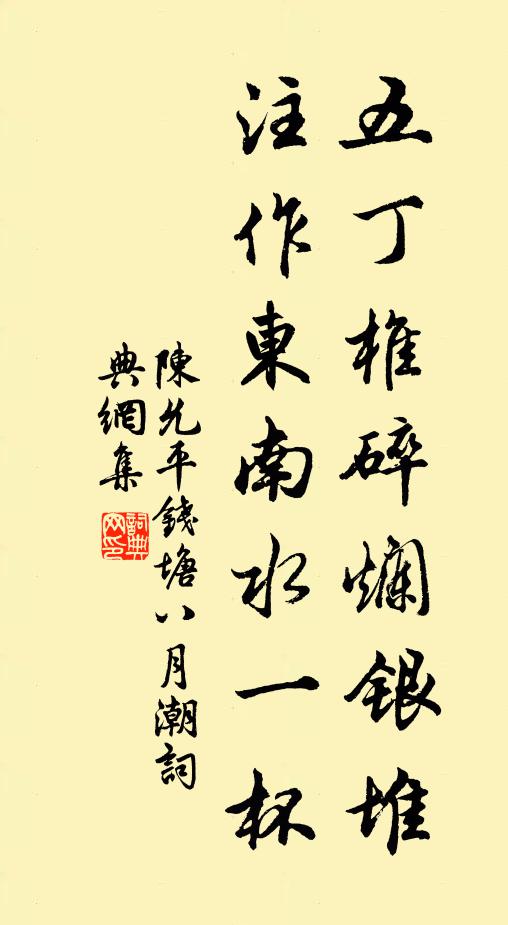 五丁椎碎爛銀堆
注作東南水一杯
陳允平錢塘八月潮詞
典網集
詞典網印